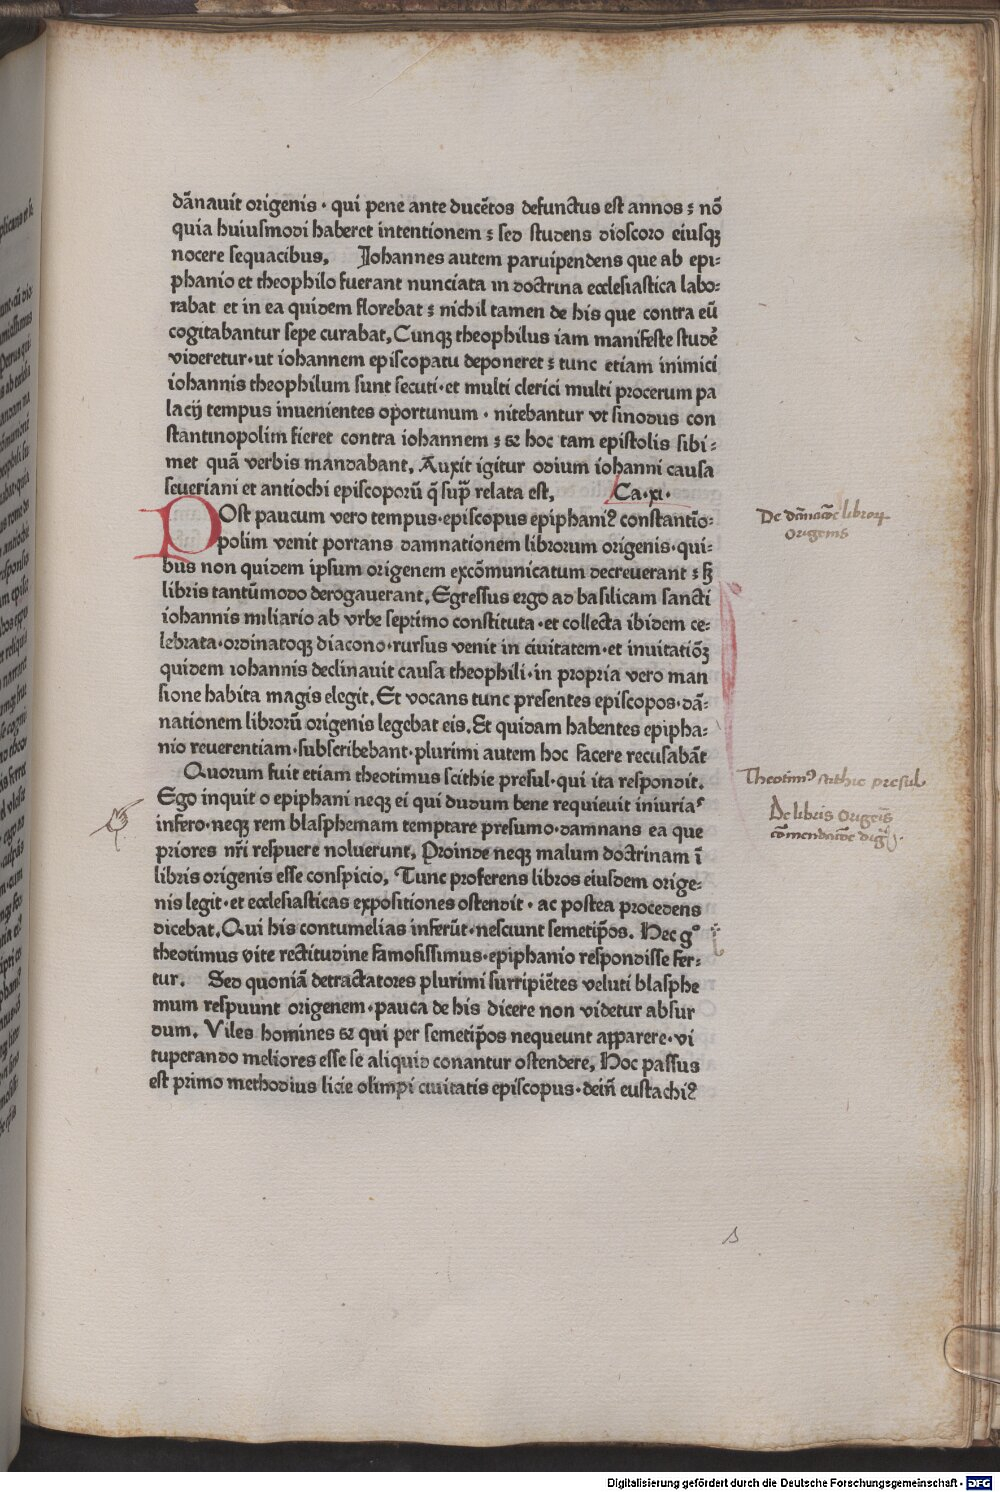 dānauit origenis · qui pene ante ducētos defunctus est annos : nō
quia huiusmodi haberet intentionem : sed studens dioscoro eiusqꝫ
nocere sequacibus, Iohannes autem paruipendens que ab epi-
phanio et theophilo fuerant nunciata in doctrina ecclesiastica labo-
rabat et in ea quidem florebat : nichil tamen de his que contra eū
cogitabantur sepe curabat, Cunqꝫ theophilus iam manifeste studē
videretur · ut iohannem episcopatu deponeret : tunc etiam inimici
iohannis theophilum sunt secuti · et multi clerici multi procerum pa
lacij tempus inuenientes oportunum · nitebantur vt sinodus con
stantinopolim fieret contra iohannem : ꝫ hoc tam epistolis sibi-
met quā verbis mandabant, Auxit igitur odium iohanni causa
seueriani et antiochi episcoporū q̄ sup̄ relata est, Ca · xi ·
POst paucum vero tempus · episcopus epiphaniꝰ constantīo-
polim venit portans damnationem librorum origenis · qui-
bus non quidem ipsum origenem excōmunicatum decreuerant : sꝫ
libris tantūmodo derogauerant, Egressus ergo ad basilicam sancti
iohannis miliario ab vrbe septimo constituta · et collecta ibidem ce-
lebrata · ordinatoqꝫ diacono · rursus venit in ciuitatem · et inuitatiōꝫ
quidem iohannis declinauit causa theophili · in propria vero man
sione habita magis elegit, Et vocans tunc presentes episcopos · dā-
nationem librorū origenis legebat eis, Et quidam habentes epipha-
nio reuerentiam · subscribebant · plurimi autem hoc facere recusabāt
Quorum fuit etiam theotimus scithie presul · qui ita respondit,
Ego inquit o epiphani neqꝫ ei qui dudum bene requieuit iniuriā
infero · neqꝫ rem blasphemam temptare presumo · damnans ea que
priores nr̄i respuere noluerunt, Proinde neqꝫ malum doctrinam ī
libris origenis esse conspicio, Tunc proferens libros eiusdem orige-
nis legit · et ecclesiasticas expositiones ostendit · ac postea procedens
dicebat, Qui his contumelias inferūt · nesciunt semetip̄os, Hec gº
theotimus vite rectitudine famosissimus · epiphanio respondisse fer-
tur, Sed quoniā detractatores plurimi surripiētes veluti blasphe
mum respuunt origenem · pauca de his dicere non videtur absur
dum, Viles homines ꝫ qui per semetip̄os nequeunt apparere · vi
tuperando meliores esse se aliquid conantur ostendere, Hoc passus
est primo methodius licie olimpi ciuitatis episcopus · dein̄ eustachiꝰ
De dānacōe libroꝝ
Origenis
Theotimꝰ scithie presul
De libris Origeīs
cōmendacōe
Digitalisierung gefördert durch die Deutsche Forschungsgemeinschaft - DFG